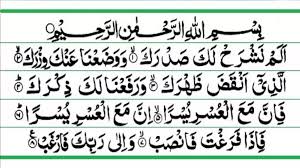 بِسْمِ اللّٰهِ الرَّحْمٰنِ الرَّحِيْمِ
اَلَمْ نَشْرَحْ لَكَ صَدْرَكَ ۙ۝۱ وَوَضَعْنَا عَنْكَ وِزْرَكَ ۙ۝۲
الَّذِيْٓ اَنْقَضَ ظَهْرَكَ ۙ۝۳ وَرَفَعْنَا لَكَ ذِكْرَكَ ؕ۝۴
فَاِنَّ مَعَ الْعُسْرِ يُسْرًا ۙ۝۵ اِنَّ مَعَ الْعُسْرِ يُسْرًا ؕ۝۶
فَاِذَا فَرَغْتَ فَانْصَبْ ۙ۝۷ وَاِلٰى رَبِّكَ فَارْغَبْ ۝۸